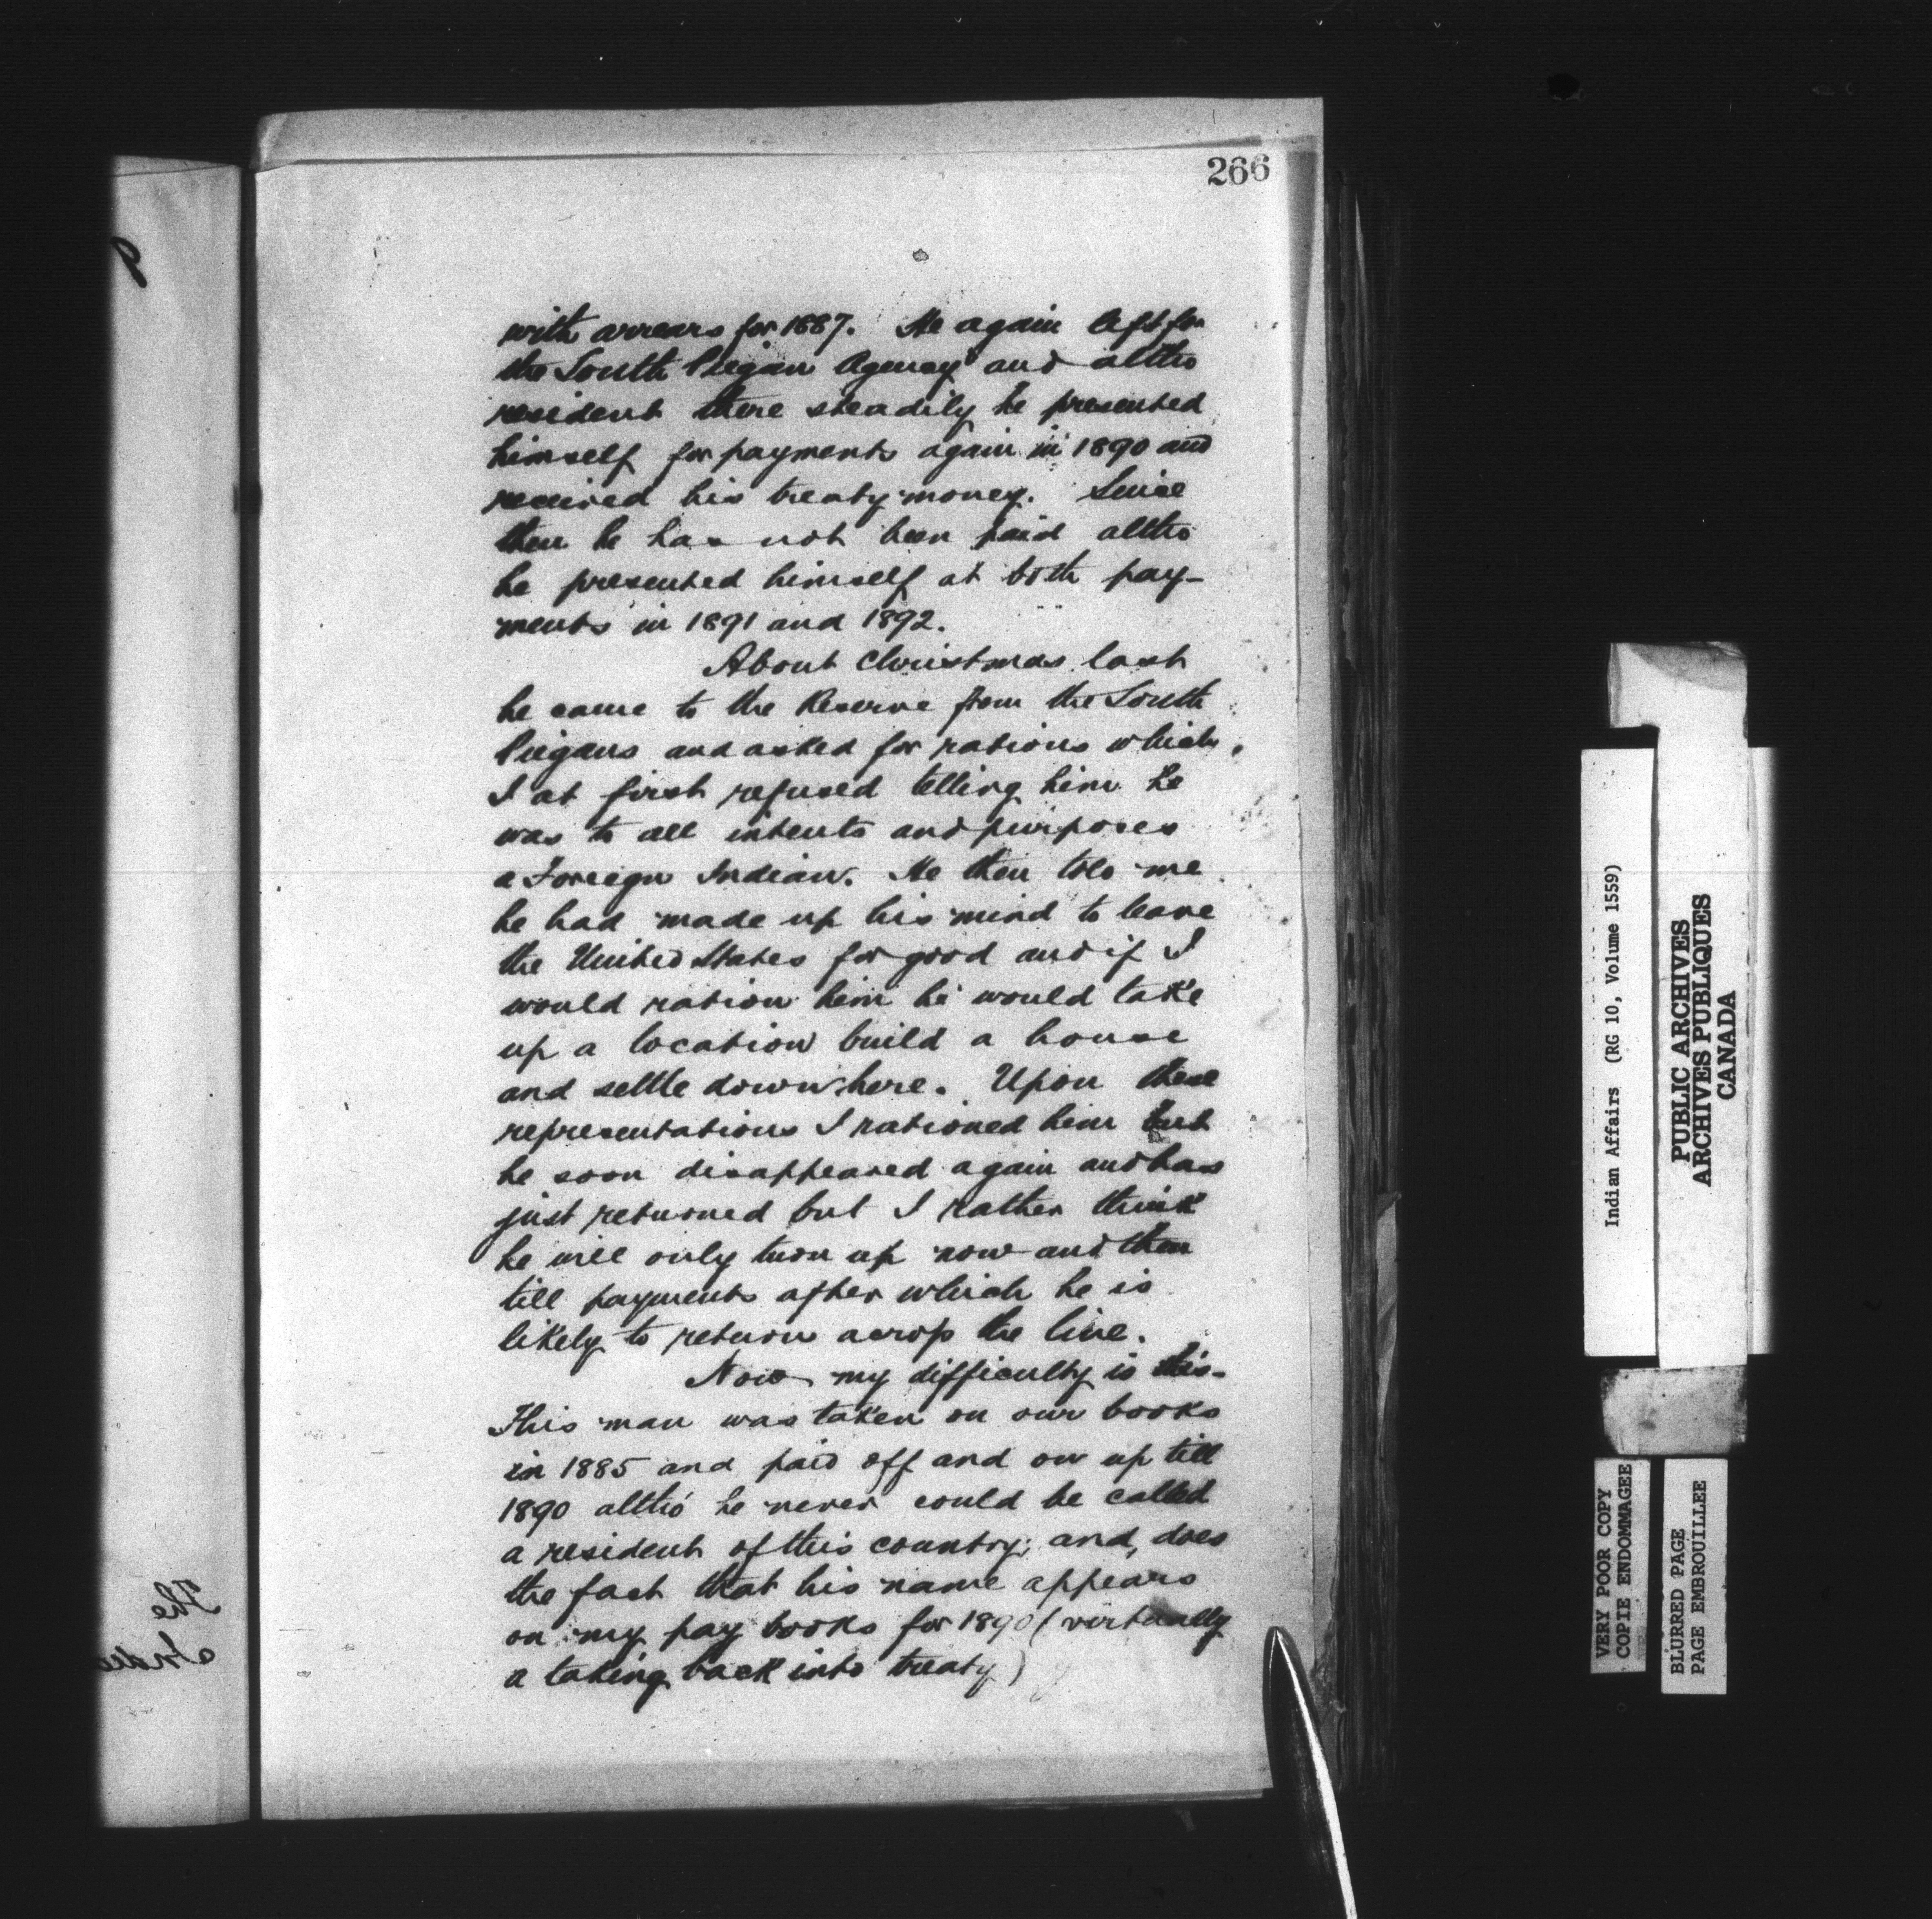 266
with arrears for 1887. He again left for
the South Piegan Agency and altho
resident there steadily he presented
himself for payments again in 1890 and
received his treaty money. Since
then he has not been paid altho
he presented himself at both pay-
ments in 1891 and 1892.
About Christmas last
he came to the Reserve from the South
Piegans and asked for rations which,
I at first refused telling him he
was to all intents and purposes
a Foreign Indian. He then told me
he had made up his mind to leave
the United States for good and if I
would ration him he would take
up a location build a house
and settle down here. Upon these
representations I rationed him but
he soon disappeared again and has
just returned but I rather think
he will only turn up now and then
till payments after which he is
likely to return across the line.
Now my difficulty is this-
This man was taken on our books
in 1885 and paid off and on up till
1890 altho' he never could be called
a resident of this country, and, does
the fact that his name appears
on my pay books for 1890 (virtually
a taking back into treaty)
The
Indian Affairs (RG 10, Volume 1559)
PUBLIC ARCHIVES
ARCHIVES PUBLIQUES
CANADA
VERY POOR COPY
COPIE ENDOMMAGEE
BLURRED PAGE
PAGE EMBROUILLEE